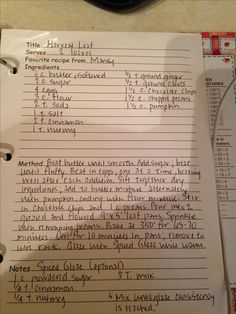 Title Harvest Loaf
Serves 2 loaves
Favorite recipe from Mandy
Ingredients
1 c butter, softened 1½ t. ground ginger
2 c. sugar ½ t. ground cloves
4 eggs 1½ c. chocolate chips
3 c. flour 1½ c. chopped pecans
2 t. soda c. pumpkin
1 t. salt
2 t. cinnamon
1 t. nutmeg
Method Beat butter until smooth. Add sugar, beat
until fluffy. Beat in eggs, one at a time, beating
well after each addition. Sift together dry
ingredients, add to butter mixture alternately
with pumpkin, ending with flour mixture. Stir
in chocolate chips and 1 c pecans. Pour into 2
greased and floured 9"x5" loaf pans. Sprinkle
with remaining pecans. Bake at 350 for 65-70
minutes. Cool for 10 minutes in pans, remove to
wire rack. Glaze with Spiced Glaze while warm.
Notes Spiced Glaze (optional)
1 c. powdered sugar T. milk
t. cinnamon
t. nutmeg Mix until glaze consistency
is reached.